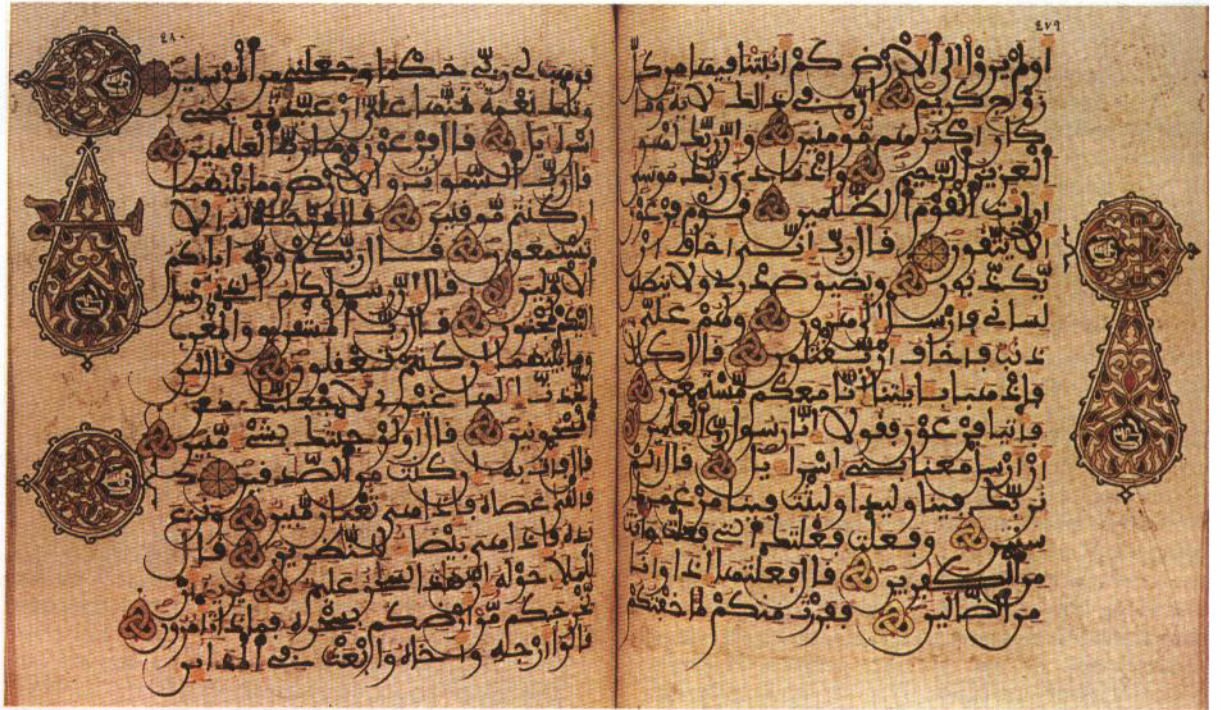 ٢٧٩
اولم يروا الى الارض كم انبتنا فيها من كل
زوج كريم ان في ذلك لاية وما
كان اكثرهم مومنين وان ربك لهو
العزيز الرحيم واذ نادى ربك موسى
ان ايت القوم الظلمين قوم فرعون
الا يتقون قال رب اني اخاف ان
يكذبون ويضيق صدري ولا ينطلق
لساني فارسل الى هرون ولهم علي
ذنب فاخاف ان يقتلون قال كلا
فاذهبا بايتنا انا معكم مستمعون
فاتيا فرعون فقولا انا رسول رب العلمين
ان ارسل معنا بني اسرايل قال الم
نربك فينا وليدا ولبثت فينا من عمرك
سنين وفعلت فعلتك التي فعلت وانت
من الكفرين قال فعلتها اذا وانا
من الضالين ففررت منكم لما خفتكم
٢٨٠
فوهب لي ربي حكما وجعلني من المرسلين
وتلك نعمة تمنها علي ان عبدت بني
اسرايل قال فرعون وما رب العلمين
قال رب السموات والارض وما بينهما
ان كنتم موقنين قال لمن حوله الا
تستمعون قال ربكم ورب ابايكم
الاولين قال ان رسولكم الذي ارسل
اليكم لمجنون قال رب المشرق والمغرب
وما بينهما ان كنتم تعقلون قال لين
اتخذت الها غيري لاجعلنك من
المسجونين قال اولو جيتك بشيء مبين
قال فات به ان كنت من الصدقين
فالقى عصاه فاذا هي ثعبان مبين ونزع
يده فاذا هي بيضاء للنظرين قال
للملا حوله ان هذا لسحر عليم يريد ان
يخرجكم من ارضكم بسحره فماذا تامرون
قالوا ارجه واخاه وابعث في المداين